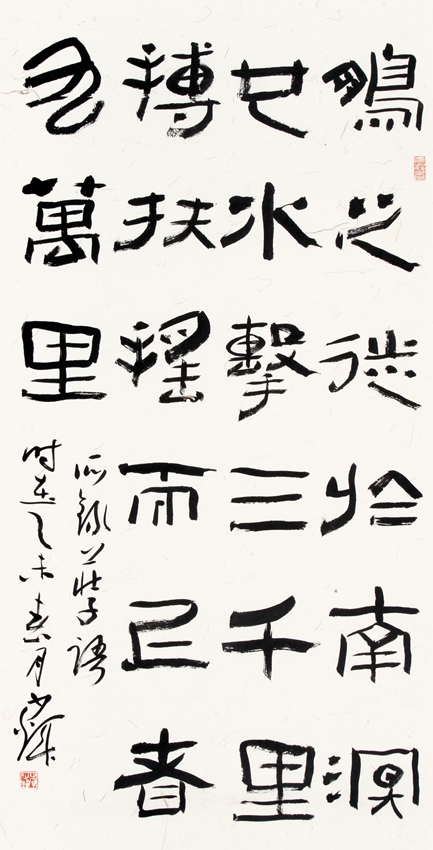 鵬之徙於南溟
也水擊三千里
搏扶搖而上者
九萬里
所錄莊子語
時在乙未春月